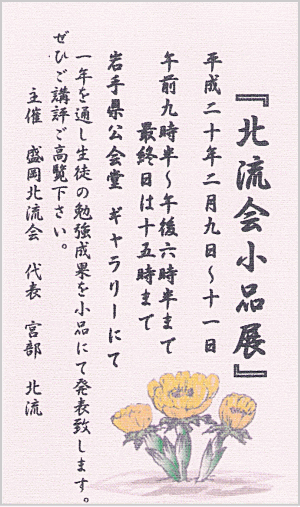 『北流会小品展』
平成二十年二月九日~十一日
午前九時半~午後六時半まで
最終日は十五時まで
岩手県公会堂 ギャラリーにて
一年を通し生徒の勉強成果を小品にて発表致します。
ぜひご講評ご高覧下さい。
主催 盛岡北流会 代表 宮部 北流